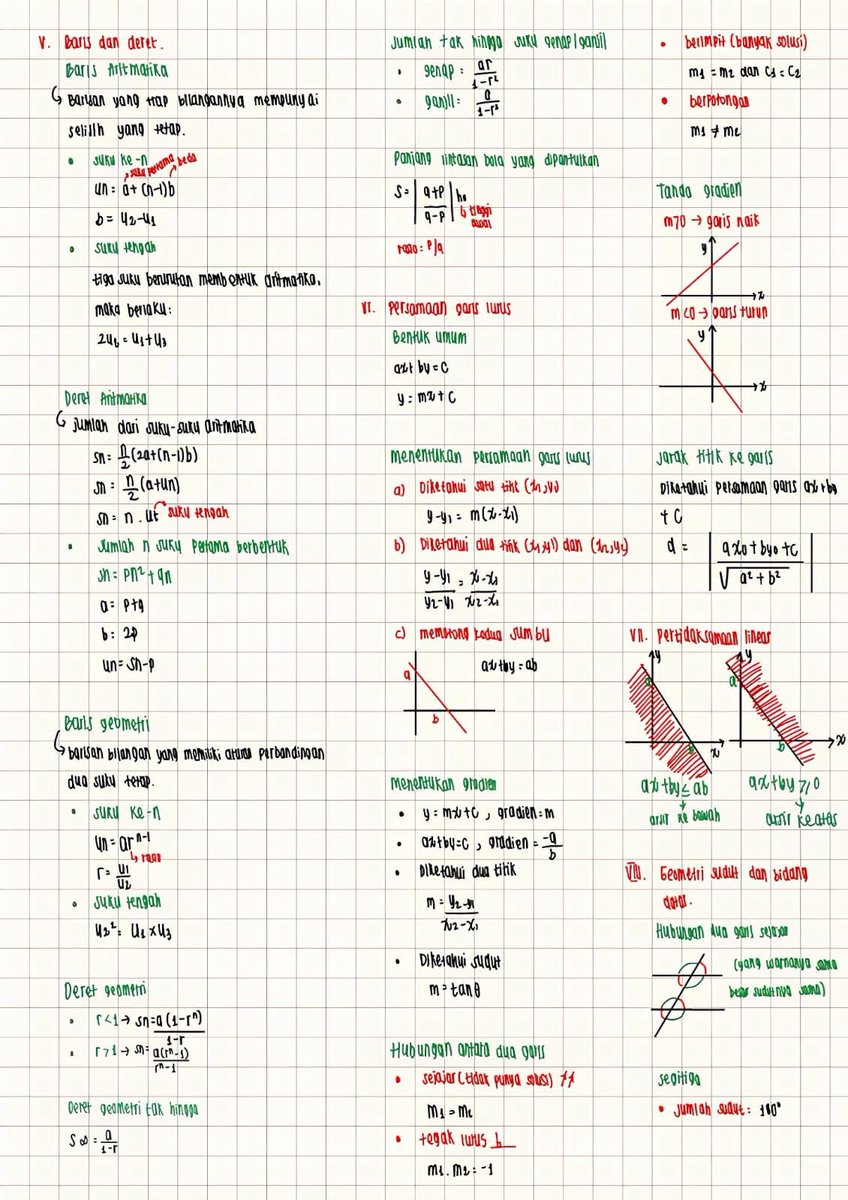 V. Baris dan deret.
Baris Aritmatika
Barisan yang tiap bilangannya mempunyai
selisih yang tetap.
• suku ke-n
suku pertama
beda
un = a + (n-1)b
b = u2 - u1
• suku tengah
tiga suku berurutan membentuk aritmatika,
maka berlaku:
2ut = u1 + u3
Deret Aritmatika
Jumlah dari suku-suku aritmatika
sn = n/2 (2a+(n-1)b)
sn = n/2 (a+un)
sn = n . ut suku tengah
• Jumlah n suku pertama berbentuk
sn = pn² + qn
a = p+q
b = 2p
un = sn-p
Baris geometri
barisan bilangan yang memiliki aturan perbandingan
dua suku tetap.
• suku ke-n
un = ar^n-1
rasio
r = u1/u2
• suku tengah
u2² = u1 x u3
Deret geometri
• r<1 → sn = a(1-r^n)/1-r
• r>1 → sn = a(r^n-1)/r^n-1
Deret geometri tak hingga
S∞ = a/1-r
Jumlah tak hingga suku genap/ganjil
• genap : ar/1-r²
• ganjil : a/1-r²
Panjang lintasan bola yang dipantulkan
S = |q+p/q-p| h0
tinggi awal
rasio : p/q
VI. Persamaan garis lurus
Bentuk umum
ax + by = c
y = mx + c
Menentukan persamaan garis lurus
a) Diketahui satu titik (x1,y1)
y-y1 = m(x-x1)
b) Diketahui dua titik (x1,y1) dan (x2,y2)
y-y1/y2-y1 = x-x1/x2-x1
c) memotong kedua sumbu
a
ax+by = ab
b
Menentukan gradien
• y = mx+c , gradien = m
• ax+by=c , gradien = -a/b
• Diketahui dua titik
m = y2-y1/x2-x1
• Diketahui sudut
m = tan θ
Hubungan antara dua garis
• sejajar (tidak punya solusi) //
m1 = m2
• tegak lurus
m1 . m2 = -1
• berimpit (banyak solusi)
m1 = m2 dan c1 = c2
• berpotongan
m1 ≠ m2
Tanda gradien
m>0 → garis naik
y
x
m<0 → garis turun
y
x
Jarak titik ke garis
Diketahui persamaan garis ax+by
+ c
d = |ax0 + by0 + c/√a² + b²|
VII. Pertidaksamaan linear
y
a
b
x
y
a
b
x
ax+by ≤ ab
arsir ke bawah
ax+by ≥ 0
arsir ke atas
VIII. Geometri sudut dan bidang
datar.
Hubungan dua garis sejajar
(yang warnanya sama
besar sudutnya sama)
segitiga
• jumlah sudut : 180°